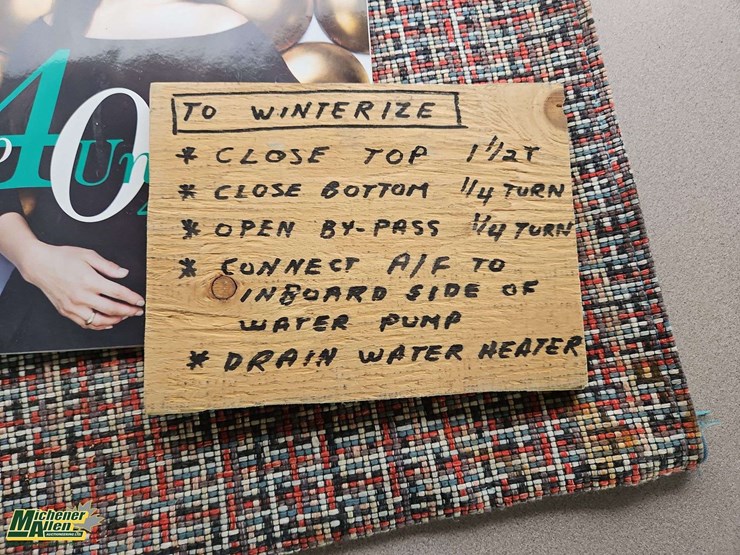 40
Un
TO WINTERIZE
* CLOSE TOP 1 1/2 T
* CLOSE BOTTOM 1/4 TURN
* OPEN BY-PASS 1/4 TURN
* CONNECT A/F TO
INBOARD SIDE OF
WATER PUMP
* DRAIN WATER HEATER
Michener
Allen
AUCTIONEERING LTD.